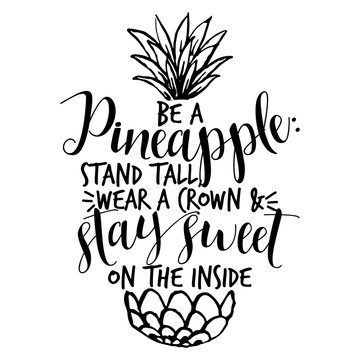 BE A
Pineapple:
STAND TALL,
WEAR A CROWN &
stay sweet
ON THE INSIDE